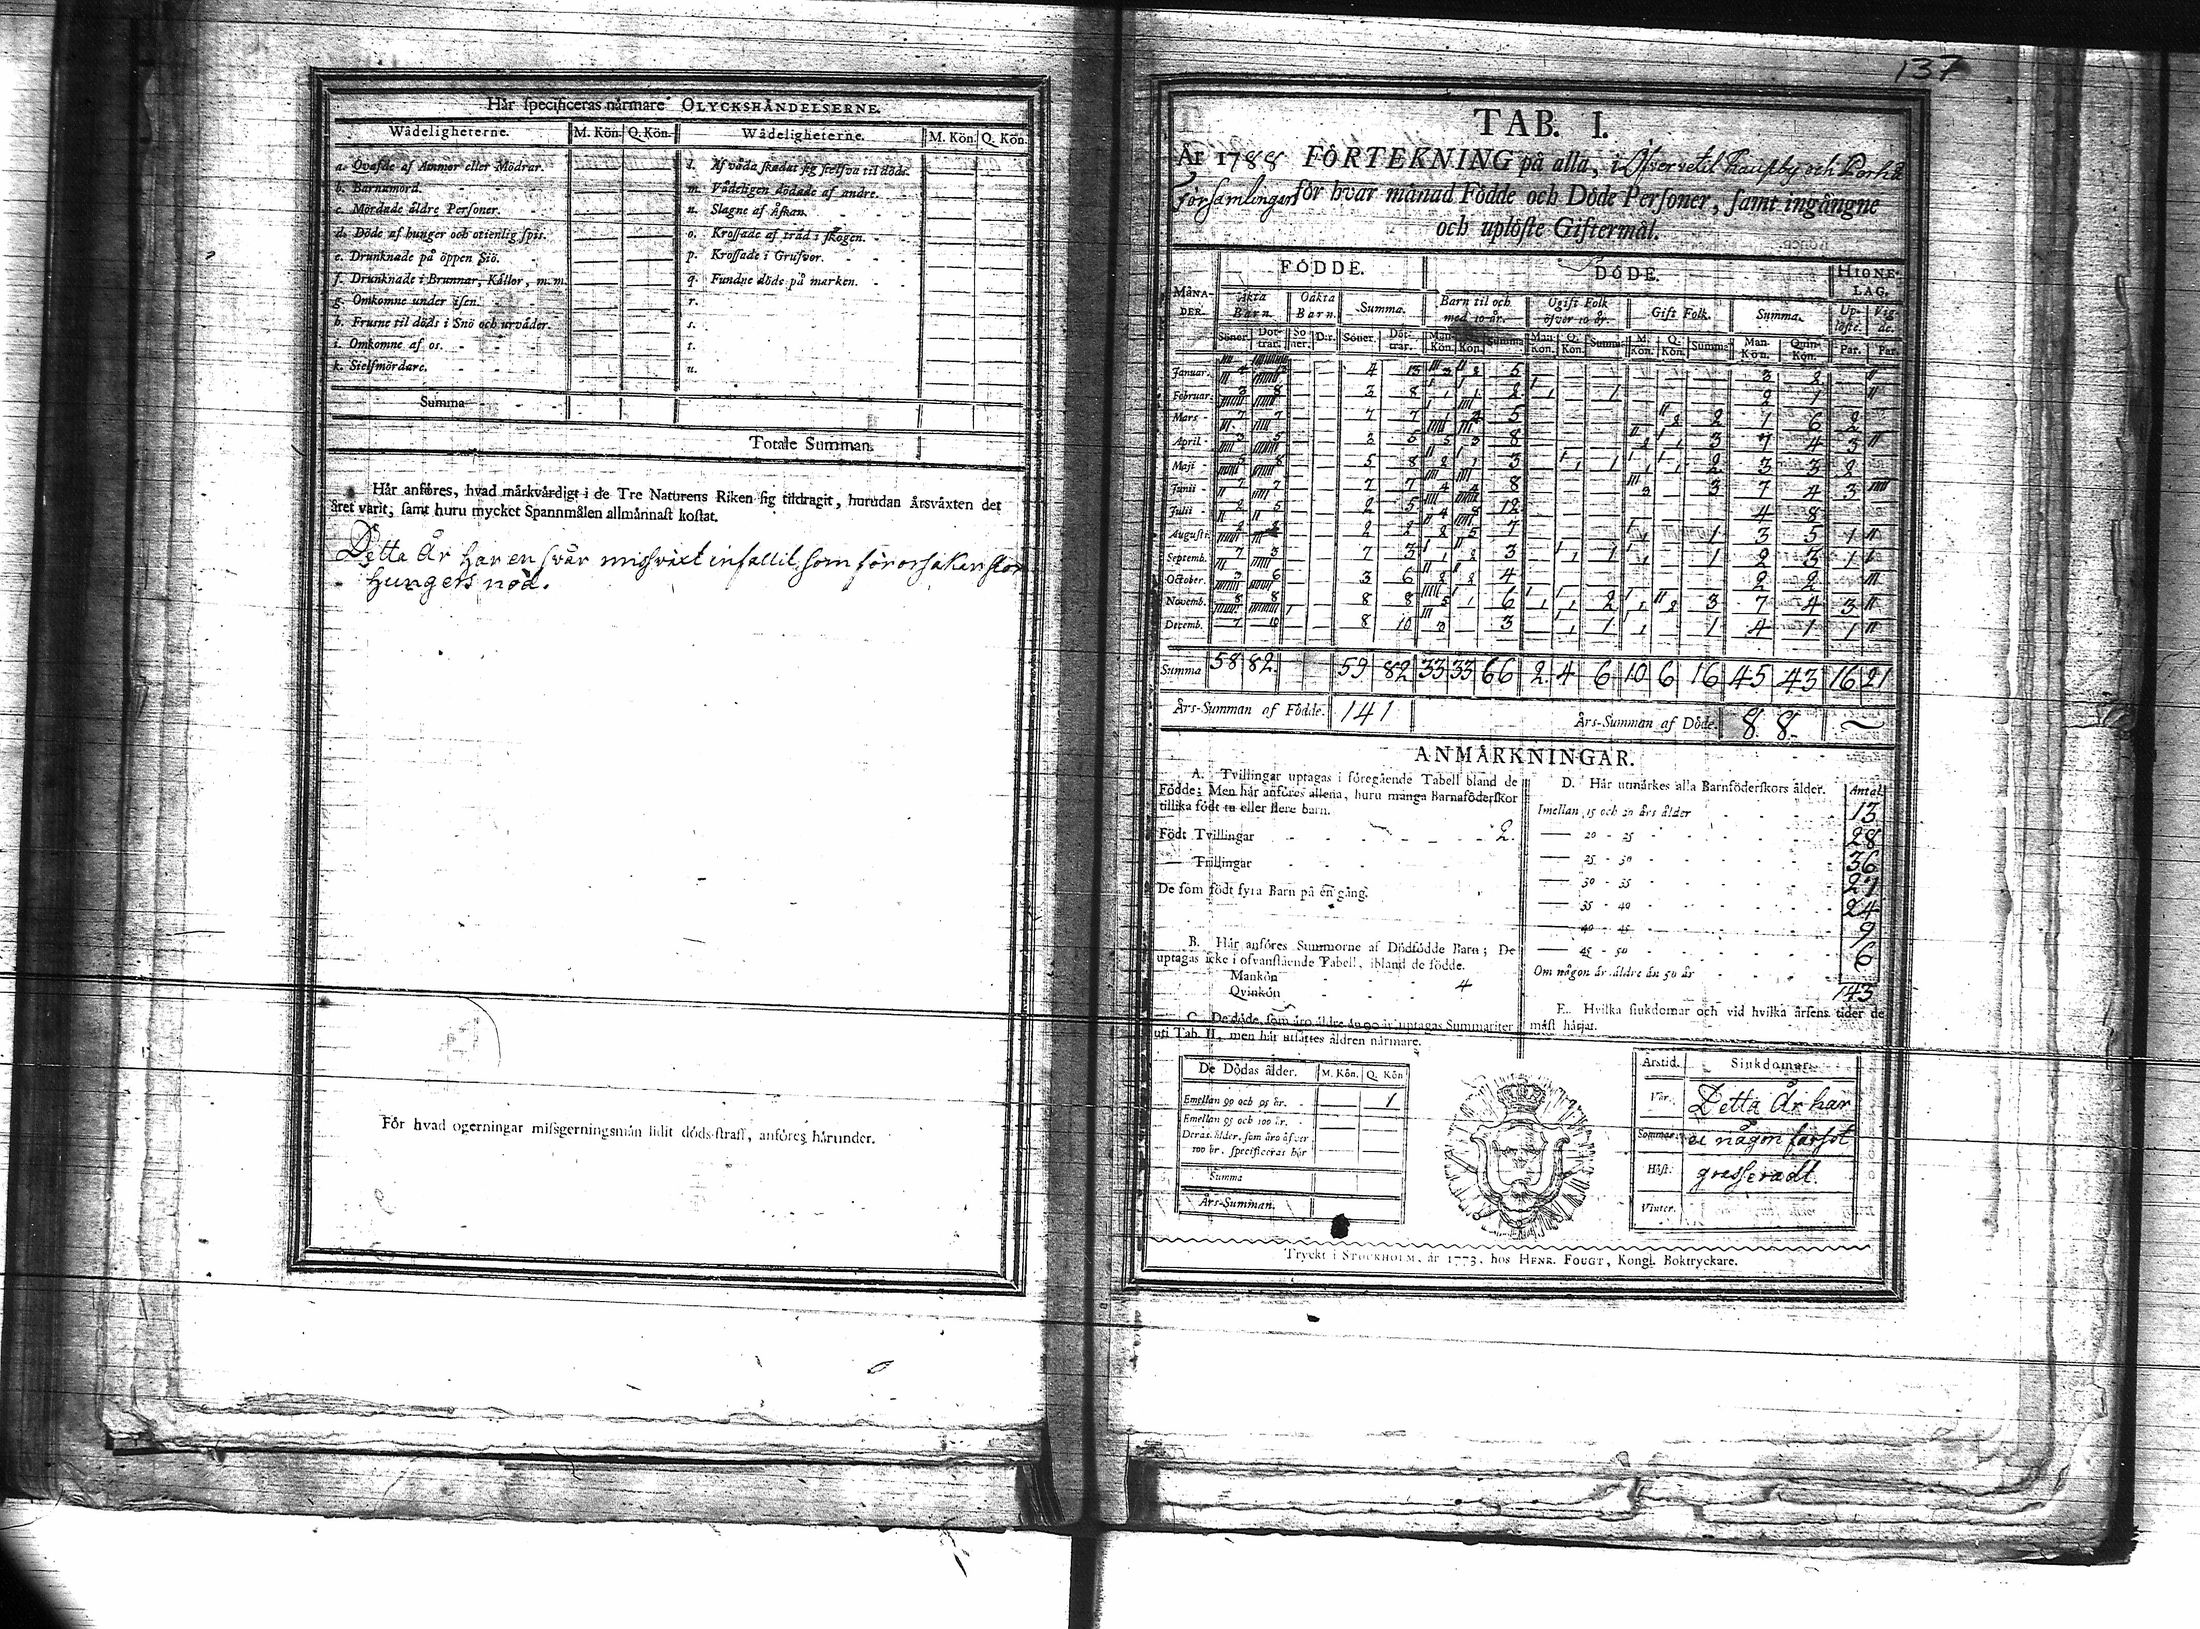 Här specificeras närmare OLYCKSHÄNDELSERNE.
Wådeligheterne. M. Kön. Q. Kön. Wådeligheterne. M. Kön. Q. Kön.
a. Qvafde af Ammor eller Mödrar. l. Af våda skadat sig sielfva til döds.
b. Barnamord. m. Vådeligen dödade af andre.
c. Mördade äldre Personer. n. Slagne af Åskan.
d. Döde af hunger och otienlig spis. o. Krossade af träd i skogen.
e. Drunknade på öppen Siö. p. Krossade i Grufvor.
f. Drunknade i Brunnar, Källor, m.m. q. Fundne döde på marken.
g. Omkomne under isen. r.
h. Frusne til döds i Snö och urväder. s.
i. Omkomne af os. t.
k. Sielfmördare. u.
Summa
Totale Summan.
Här anföres, hvad märkvärdigt i de Tre Naturens Riken sig tildragit, hurudan årsväxten det
året varit, samt huru mycket Spannmålen allmännast kostat.
Detta År har en svår missväxt infallit, som förorsakar stor
Hungers nöd.
För hvad ogerningar missgerningsmän lidit döds-straff, anföres härunder.
137
TAB. I.
År 1788 FÖRTEKNING på alla, i Öfvervetil och
Församlingar för hvar månad Födde och Döde Personer, samt ingångne
och uplöste Giftermål.
FÖDDE. DÖDE. HIONE-
LAG.
MÅNA-
DER.
Äkta Barn. Oäkta Barn. Summa. Barn til och med 10 år. Ogift Folk öfver 10 år. Gift Folk. Summa. Up-löste. Vig-de.
Söner. Döt-trar. So-ner. D:r. Söner. Döt-trar. Man-Kön. Q. Kön. Summa Man-Kön. Q. Kön. Summa M. Kön. Q. Kön. Summa Man-Kön. Quin-Kön. Par. Par.
Januar. 4 13 4 13 3 2 5 3 2
Februar. 3 8 3 8 1 1 2 1 1 2 1
Mars 7 7 7 7 1 4 5 2 2 1 6 2
April 3 5 3 5 5 3 8 2 1 3 7 4 3
Maji 5 8 5 8 2 1 3 1 1 1 1 2 3 3 2
Junii 7 7 7 7 4 4 8 3 3 7 4 3
Julii 2 5 2 5 4 8 12 4 8
Augusti 2 2 2 2 2 5 7 1 1 3 5 1
Septemb. 7 3 7 3 1 2 3 1 1 1 1 2 3 1
October. 3 6 3 6 2 2 4 2 2
Novemb. 8 8 8 8 5 1 6 1 1 2 1 2 3 7 4 3
Decemb. 7 10 8 10 3 3 1 1 1 1 4 1 1
Summa 58 82 59 82 33 33 66 2 4 6 10 6 16 45 43 16 21
Års-Summan af Födde. 141 Års-Summan af Döde 88
ANMÄRKNINGAR.
A. Tvillingar uptagas i föregående Tabell bland de
Födde; Men här anföres allena, huru många Barnaföderskor
tillika födt tu eller flere barn.
Födt Tvillingar 2.
Trillingar
De som födt fyra Barn på en gång.
B. Här anföres Summorne af Dödfödde Barn; De
uptagas icke i ofvanstående Tabell, ibland de födde.
Mankön
Qvinkön 4
C. De döde, som äro äldre än 90 år uptagas Summariter
uti Tab. II, men här utsattes åldren närmare.
De Dödas ålder. M. Kön. Q. Kön
Emellan 90 och 95 år. 1
Emellan 95 och 100 år.
Deras ålder, som äro öfver
100 år, specificeras här
Summa
Års-Summan.
D. Här utmärkes alla Barnföderskors ålder. Antal
Imellan 15 och 20 års ålder 13
20 - 25 28
25 - 30 36
30 - 35 27
35 - 40 24
40 - 45 9
45 - 50 6
Om någon är äldre än 50 år
143
E. Hvilka siukdomar och vid hvilka årsens tider de
mäst härjat.
Årstid. Siukdomar.
Vår. Detta År har
Sommar. ei någon farsot
Höst. grasseradt.
Vinter.
Tryckt i STOCKHOLM, år 1773, hos HENR. FOUGT, Kongl. Boktryckare.